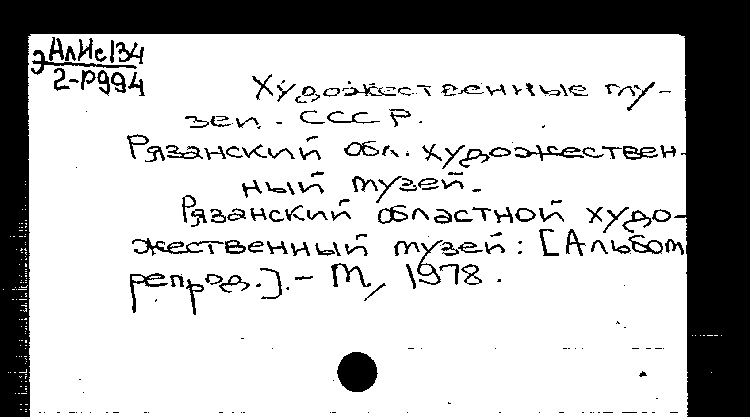 Э АлИс134
2-Р994
Художественные му-
зеи. СССР.
Рязанский обл. художествен-
ный музей.
Рязанский областной худо-
жественный музей: [Альбом
репрод.]. - М, 1978.